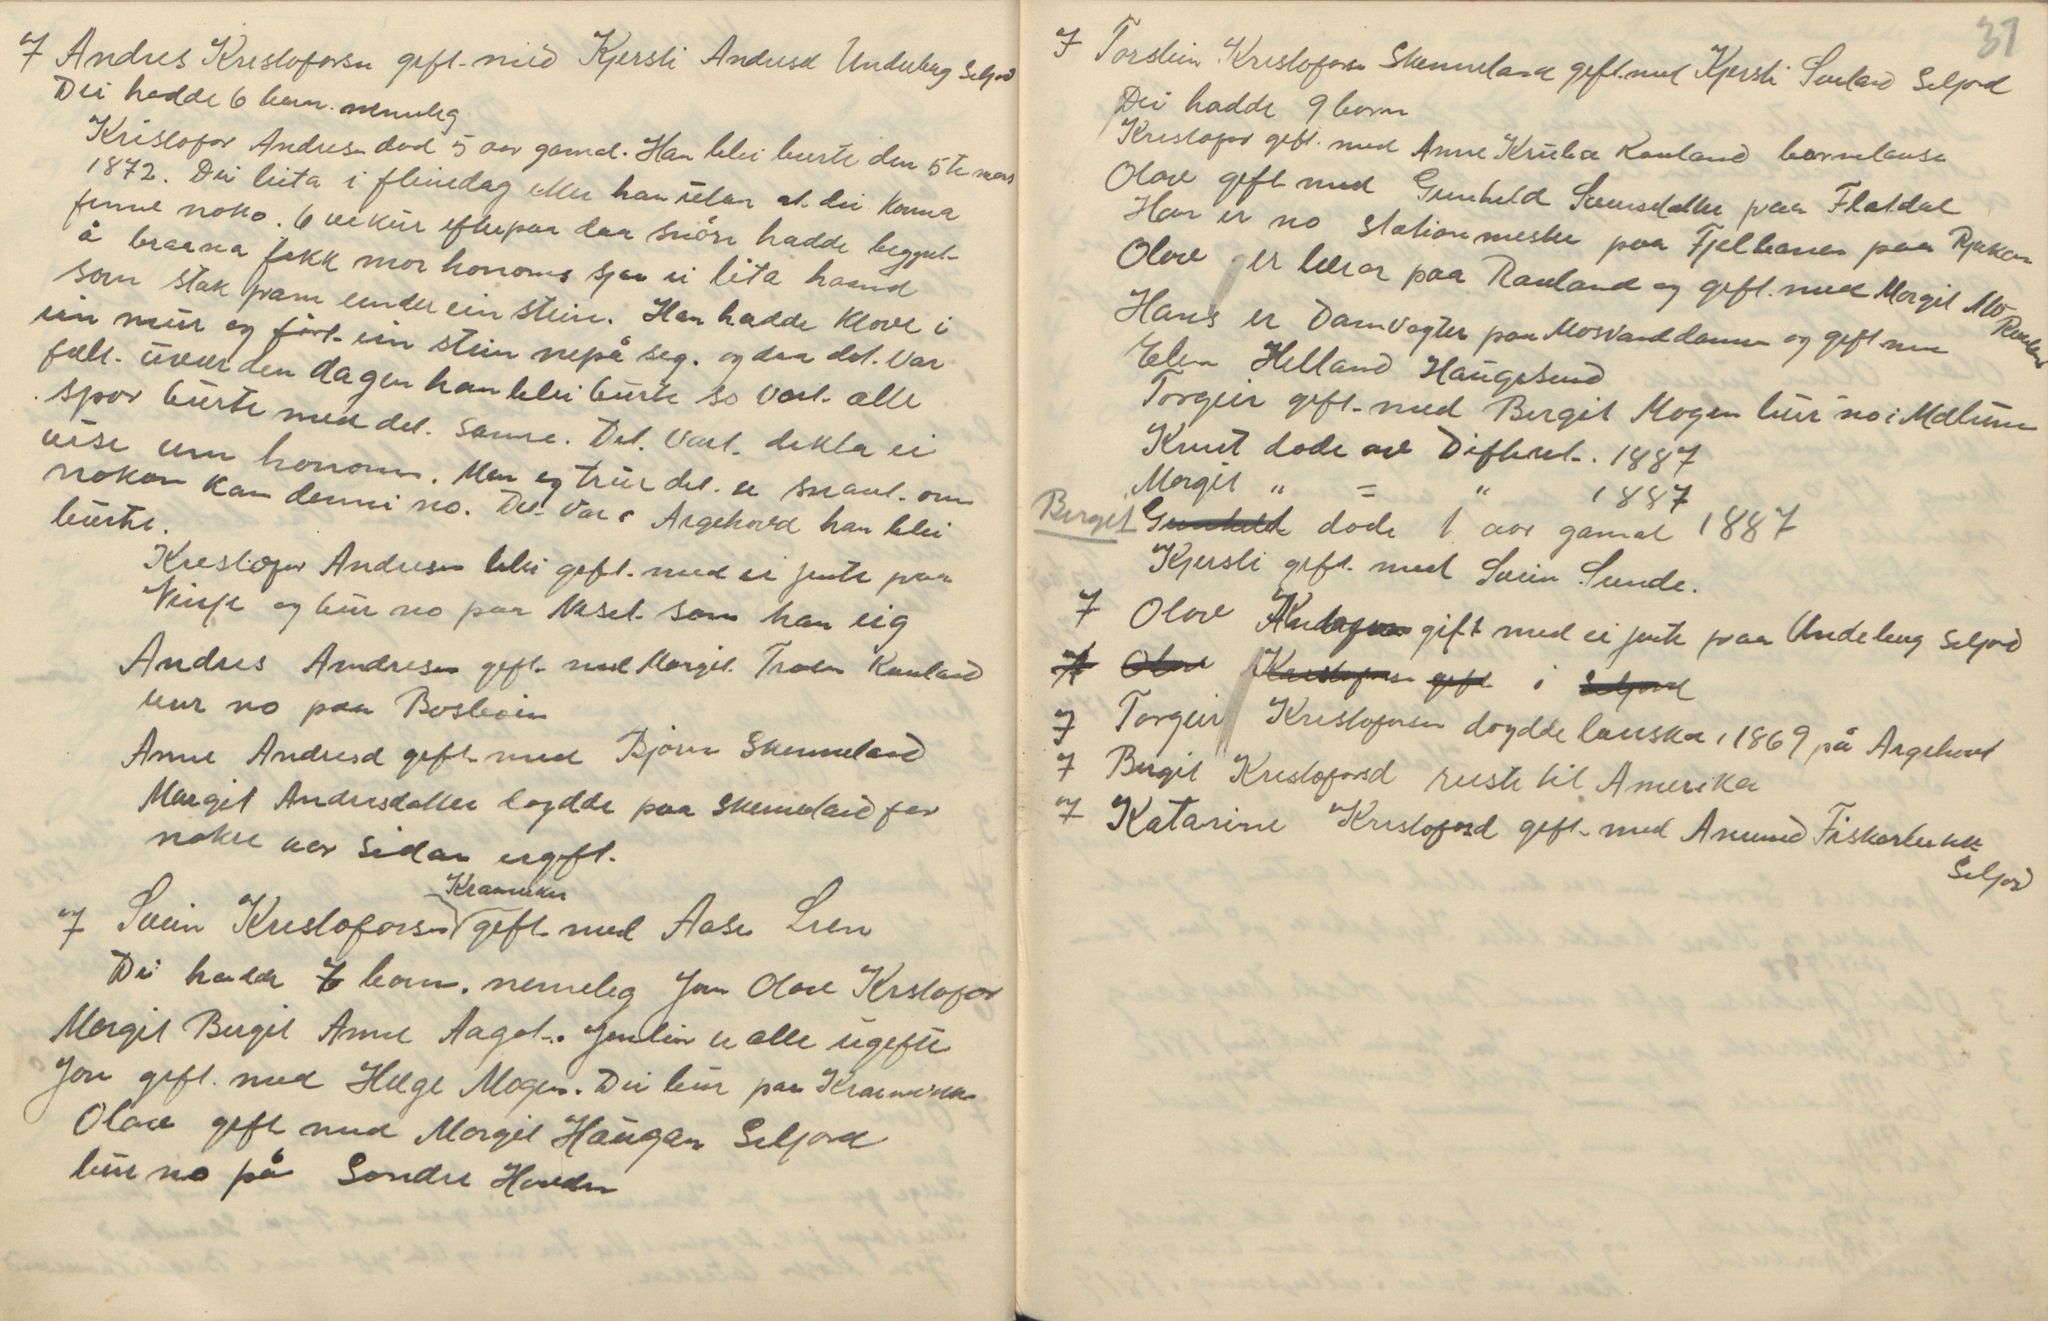 7 Andres Kristoforsn gift med Kjersti Andresd Underberg Seljord
Dei hadde 6 born. nemmleg
Kristofor Andresn død 5 aar gamal. Han blei burte den 5te mars
1872. Dei leita i fleire dag etter han utan at dei kunna
finne noko. 6 vekur efterpaa daa snøen hadde byggut
å braana fekk mor honoms sjaa ei lita haand
som stak fram under ein stein. Han hadde klove i
ein mur og fört ein stein nepå seg. og daa det var
følt uver den dagen han blei burte so vart alle
spor burte med det same. Det vart dikta ei
vise um honom. Men eg trur det er snaut om
nokon kan denni no. Det var i Argehovd han blei
burte.
Kristofor Andresen blei gift med ei jente paa
Vinje og bur no paa Neset som han eig
Andres Andresen gift med Margit Troen Rauland
bur no paa Bosbøen
Anne Andresd gift med Bjørn Skinneland
Margit Andresdatter løydde paa Skinneland for
nokre aar sidan ugift.
Kramviken
7 Svein Kristoforsn gift med Aase Lien
Dei hadde 7 born. nemeleg Jon Olav Kristofor
Margit Birgit Anne Aagot. Jentin er alle ugifte
Jon gift med Helge Mogen. Dei bur paa Kramviken
Olav gift med Margit Haugan Seljord
bur no på Sondre Hovden
31
7 Torstein Kristoforsn Skinneland gift med Kjersti Seljord
Dei hadde 9 born
Kristofor gift med Anne Rauland bornelause
Olav gift med Gunhild Sveinsdatter paa Flatdal
Han er no Stationmester paa Fjelbanen paa Rjukan
Olav er lærar paa Rauland og gift med Margit Mo
Rauland
Hans er Damvogter paa Mosvanddammen og gift med
Elen Helland Haugesund
Torgeir gift med Bergit Mogen bur no i Mælum
Knut døde av Difterit. 1887
Margit " = " 1887
Bergit Gunhild døde 1 aar gamal 1887
Kjersti gift med Svein Sunde.
7 Olav gift med ei jente paa Underberg Seljord
7 Olav Kristoforsn gift i Seljord
7 Torgeir Kristoforsen døydde lauska i 1869 på Argehovd
7 Birgit Kristoforsd reiste til Amerika
7 Katarine Kristoforsd gift med Amund Fiskarbekk
Seljord